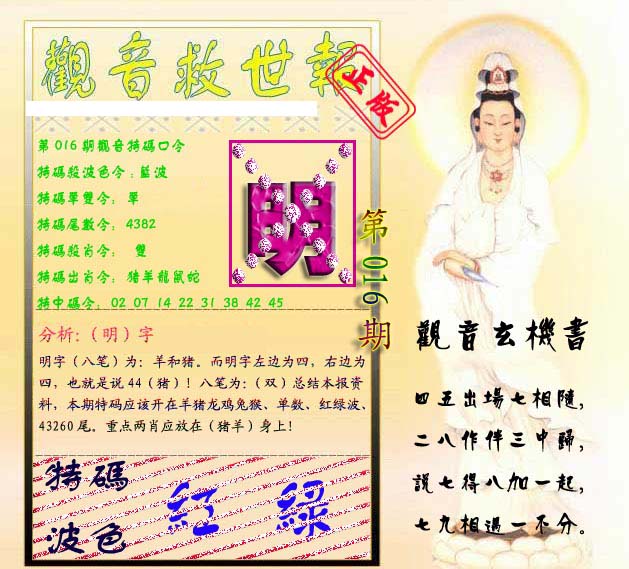 觀音救世報
正版
第016期觀音特碼口令
特碼殺波色令:藍波
特碼單雙令: 單
特碼尾數令: 4382
特碼殺肖令: 雙
特碼出肖令: 豬羊龍鼠蛇
特中碼令: 02 07 14 22 31 38 42 45
明
第016期
分析:(明)字
明字(八笔)为:羊和猪。而明字左边为四,右边为
四,也就是说44(猪)!八笔为:(双)总结本报资
料,本期特码应该开在羊猪龙鸡兔猴、单数、红绿波、
43260尾。重点两肖应放在(猪羊)身上!
特碼
波色
紅 綠
觀音玄機書
四五出場七相隨,
二八作伴三中歸,
說七得八加一起,
七九相遇一不分。